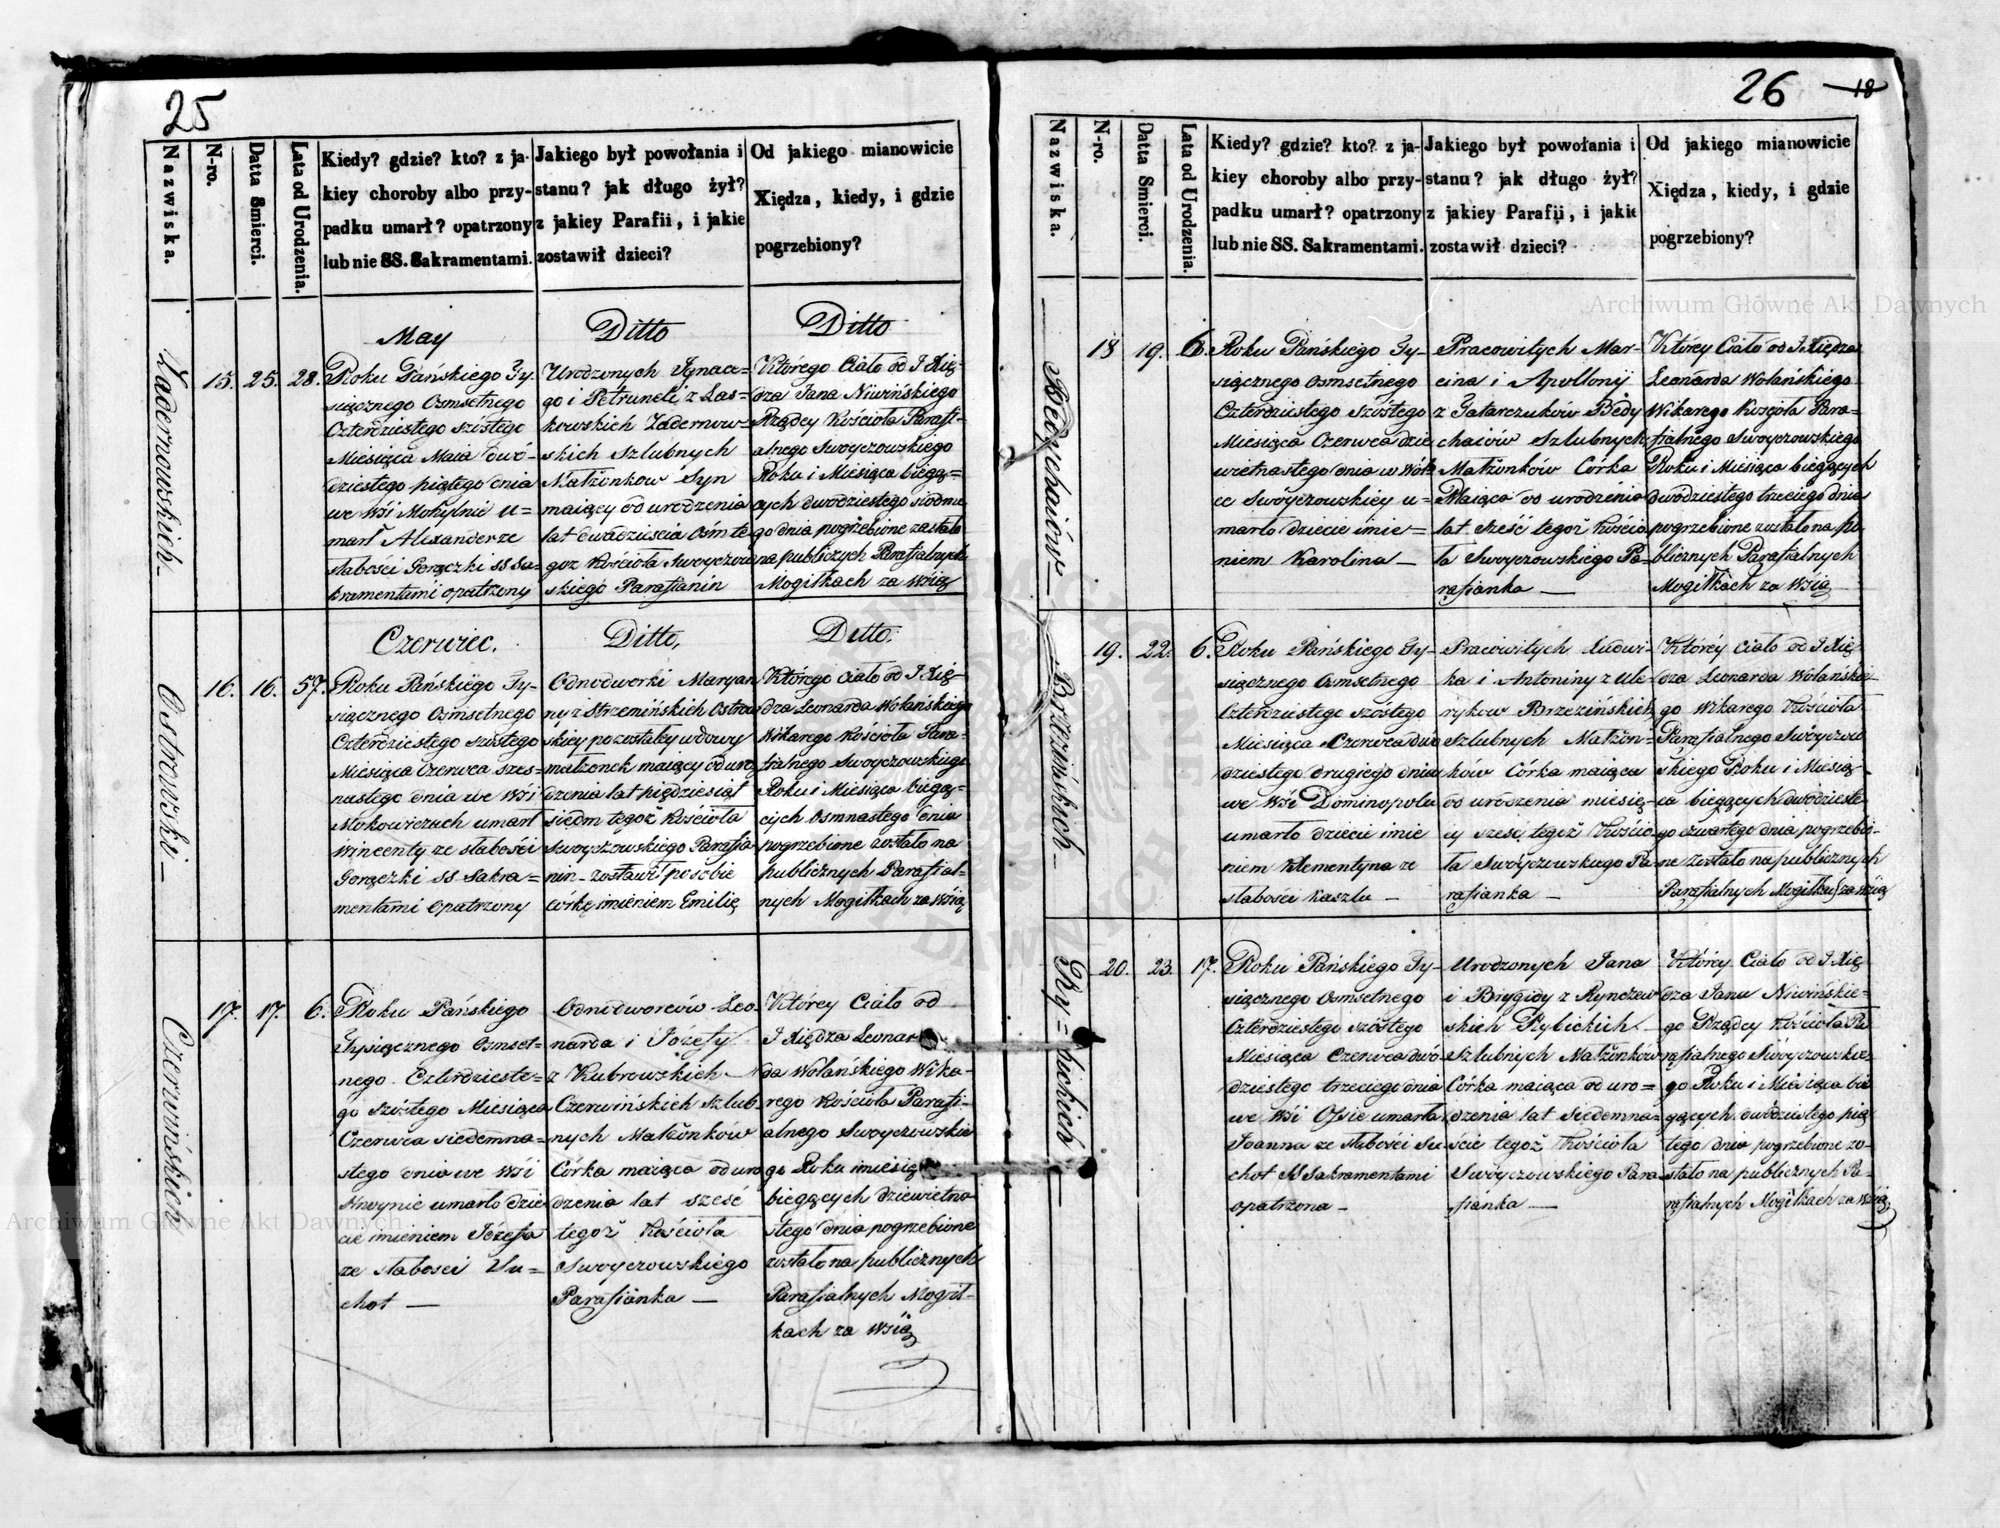 25
Nazwiska.
N-ro.
Datta Smierci.
Lata od Urodzenia.
Kiedy? gdzie? kto? z ja-
kiey choroby albo przy-
padku umarł? opatrzony
lub nie SS. Sakramentami.
Jakiego był powołania i
stanu? jak długo żył?
z jakiey Parafii, i jakie
zostawił dzieci?
Od jakiego mianowicie
Xiędza, kiedy, i gdzie
pogrzebiony?
15. 25. 28.
May
Roku Pańskiego Ty-
siącznego Osmsetnego
Czterdziestego szóstego
Miesiąca Maia dwó-
dziestego piątego dnia
we Wsi Mohylnie u-
marł Alexander ze
słabości Gorączki SS Sa-
kramentami opatrzony
Ditto
Urodzonych Ignace-
go i Petruneli z Las-
kowskich Zadernow-
skich Szlubnych
Małżonkow Syn
maiący od urodzenia
lat dwadzieścia Ośm te
goż Kościoła Swoyczow
skiego Parafianin
Ditto
Którego Ciało od J Xię-
dza Jana Niwińskiego
Rządcy Kościoła Parafi-
alnego Swoyczowskiego
Roku i Miesiąca biegą-
cych dwodziestego siodme
go dnia pogrzebione zostało
na publicznych Parafialnych
Mogiłkach za Wsią
Ostrowski
16. 16. 57.
Czerwiec.
Roku Pańskiego Ty-
siącznego Osmsetnego
Czterdziestego szóstego
Miesiąca Czerwca szes-
nastego dnia we Wsi
Mokowiczach umarł
Wincenty ze słabości
Gorączki SS Sakra-
mentami Opatrzony
Ditto,
Odnodworki Maryan
ny z Strzemińskich Ostrow
skiey pozostałey wdowy
małżonek maiący od uro
dzenia lat pięćdziesiąt
siedm tegoż Kościoła
Swoyczowskiego Parafia
nin - zostawił po sobie
córkę imieniem Emilię
Ditto.
Którego ciało od J Xię-
dza Leonarda Wolańskiego
Wikarego Kościoła Para-
fialnego Swoyczowskiego
Roku i Miesiąca biegą-
cych Osmnastego dnia
pogrzebione zostało na
publicznych Parafial-
nych Mogiłkach za Wsią
Czerwińskich
17. 17. 6.
Roku Pańskiego
Tysiącznego Osmset-
nego Czterdzieste-
go szóstego Miesiąca
Czerwca siedemna-
stego dnia we Wsi
umarło dzie
cie imieniem Józefa
ze słabości Su-
chot —
Odnodworców Leo
narda i Józefy
z Kubrowskich
Czerwińskich Szlub-
nych Małżonków
Córka maiąca od uro
dzenia lat sześć
tegoż Kościoła
Swoyczowskiego
Parafianka —
Którey Ciało od
J Xiędza Leonar
da Wolańskiego Wika-
rego Kościoła Parafi-
alnego Swoyczowskie
go Roku i miesiąca
biegących dziewietna
stego dnia pogrzebione
zostało na publicznych
Parafialnych Mogił-
kach za Wsią
26 18
Nazwiska.
N-ro.
Datta Smierci.
Lata od Urodzenia.
Kiedy? gdzie? kto? z ja-
kiey choroby albo przy-
padku umarł? opatrzony
lub nie SS. Sakramentami.
Jakiego był powołania i
stanu? jak długo żył?
z jakiey Parafii, i jakie
zostawił dzieci?
Od jakiego mianowicie
Xiędza, kiedy, i gdzie
pogrzebiony?
Bedychaiów
18 19. 6.
Roku Pańskiego Ty-
siącznego Osmsetnego
Czterdziestego szóstego
Miesiąca Czerwca dzie
wietnastego dnia w Wól
ce Swoyczowskiey u-
marło dziecie imie-
niem Karolina —
Pracowitych Mar-
cina i Apollonij
z Tatarczuków Bedy
chaiów Szlubnych
Małżonków Córka
Maiąca od urodzenia
lat sześć tegoż Kościo
ła Swoyczowskiego Pa-
rafianka —
Którey Ciało od J Xiędza
Leonarda Wolańskiego
Wikarego Kościoła Para-
fialnego Swoyczowskiego
Roku i Miesiąca biegących
dwódziestego trzeciego dnia
pogrzebione zostało na pu
blicznych Parafialnych
Mogiłkach za Wsią
Brzezińskich
19. 22. 6.
Roku Pańskiego Ty-
siącznego Osmsetnego
Czterdziestego szóstego
Miesiąca Czerwca dwó
dziestego drugiego dnia
we Wsi Dominopolu
umarło dziecie imie
niem Klementyna ze
słabości kaszlu —
Pracowitych Ludwi-
ka i Antoniny z Ule-
rykow Brzezińskich
Szlubnych Małżon-
ków Córka maiąca
od urodzenia miesię-
cy sześć tegoż Kościo-
ła Swoyczowskiego Pa-
rafianka —
Którey ciało od J Xię
dza Leonarda Wolańskie-
go Wikarego Kościoła
Parafialnego Swoyczow
skiego Roku i Miesią-
ca biegących dwodzieste
go czwartego dnia pogrzebio-
ne zostało na publicznych
Parafialnych Mogiłkach za Wsią
Ry=bickich
20. 23. 17.
Roku Pańskiego Ty-
siącznego Osmsetnego
Czterdziestego szóstego
Miesiąca Czerwca dwó
dziestego trzeciego dnia
we Wsi Ossie umarła
Joanna ze słabości Su
chot SS Sakramentami
opatrzona —
Urodzonych Jana
i Brygidy z Rynczew
skich Rybickich
Szlubnych Małżonków
Córka maiąca od uro-
dzenia lat siedemna-
ście tegoż Kościoła
Swoyczowskiego Para
fianka —
Którey Ciało od J Xię
dza Jana Niwińskie-
go Rządcy Kościoła Pa
rafialnego Swoyczowskie-
go Roku i Miesiąca bie
gących dwódziestego pią
tego dnia pogrzebione zo-
stało na publicznych Pa-
rafialnych Mogiłkach za Wsią
Archiwum Główne Akt Dawnych
Archiwum Główne Akt Dawnych